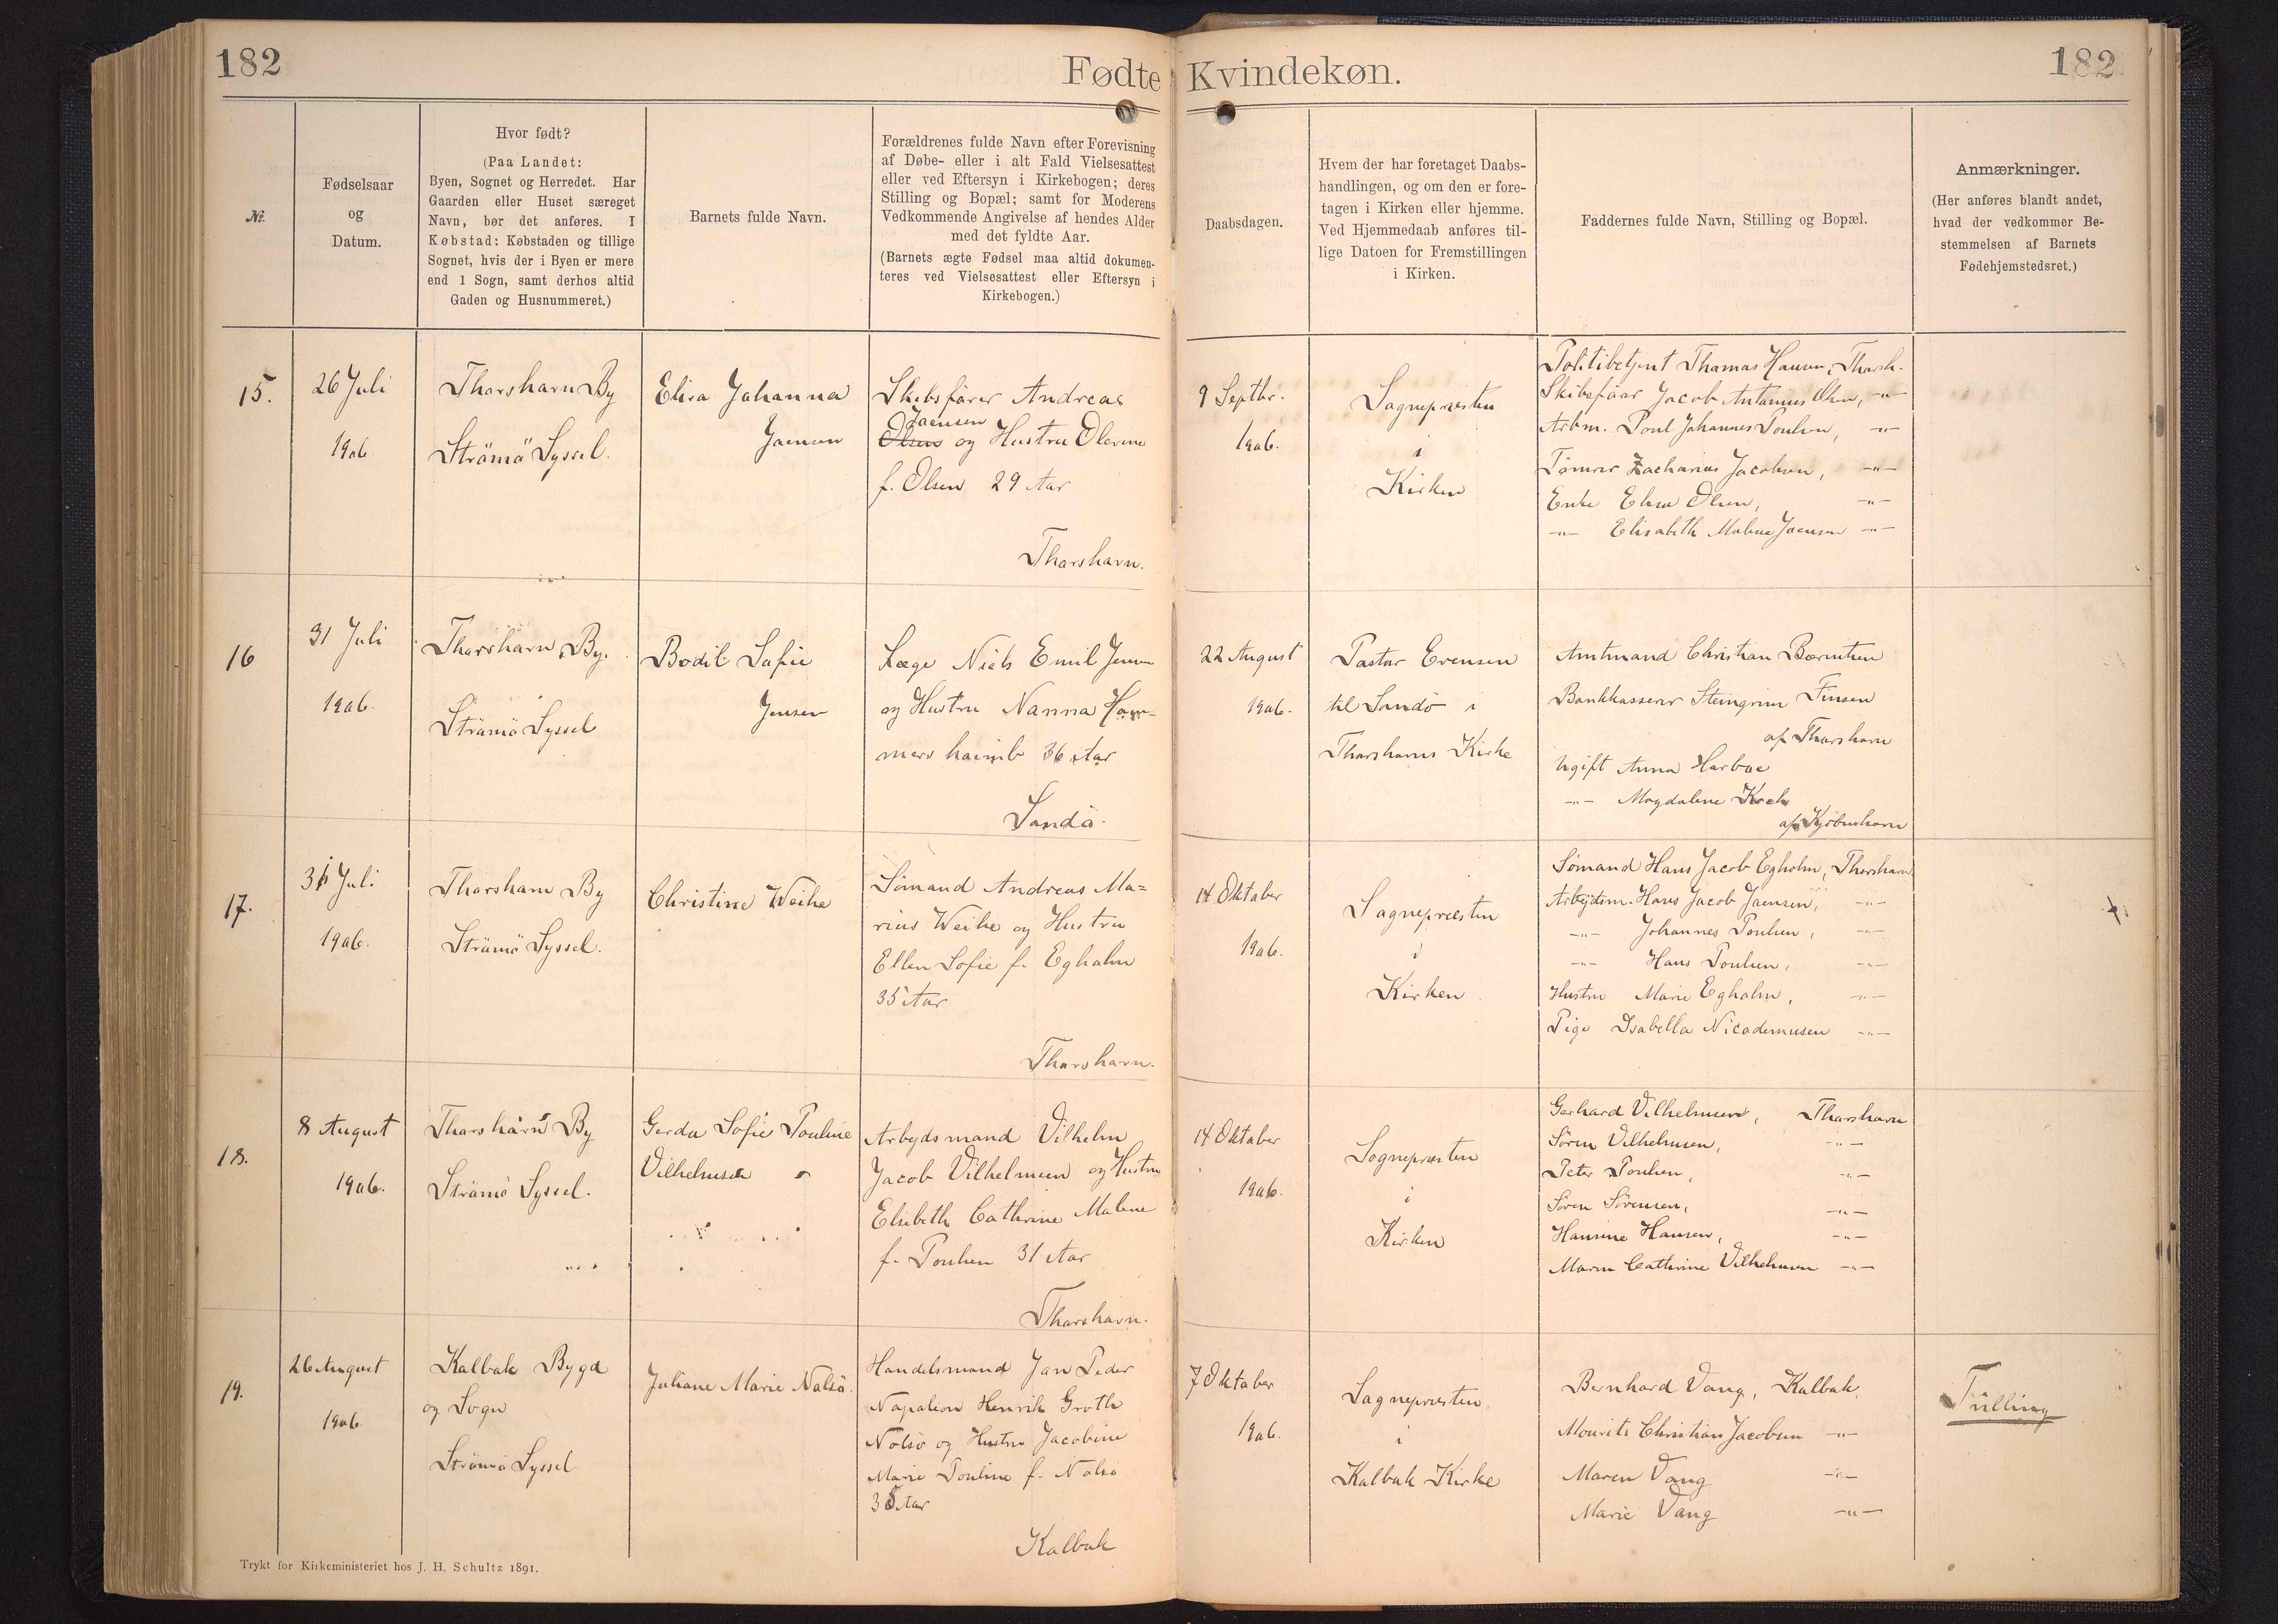 182
Fødte
Kvindekøn.
182
№.
Fødselsaar
og
Datum.
Hvor født?
(Paa Landet:
Byen, Sognet og Herredet. Har
Gaarden eller Huset særeget
Navn, bør det anføres. I
Købstad: Købstaden og tillige
Sognet, hvis der i Byen er mere
end 1 Sogn, samt derhos altid
Gaden og Husnummeret.)
Barnets fulde Navn.
Forældrenes fulde Navn efter Forevisning
af Døbe- eller i alt Fald Vielsesattest
eller ved Eftersyn i Kirkebogen; deres
Stilling og Bopæl; samt for Moderens
Vedkommende Angivelse af hendes Alder
med det fyldte Aar.
(Barnets ægte Fødsel maa altid dokumen-
teres ved Vielsesattest eller Eftersyn i
Kirkebogen.)
Daabsdagen.
Hvem der har foretaget Daabs-
handlingen, og om den er fore-
tagen i Kirken eller hjemme.
Ved Hjemmedaab anføres til-
lige Datoen for Fremstillingen
i Kirken.
Faddernes fulde Navn, Stilling og Bopæl.
Anmærkninger.
(Her anføres blandt andet,
hvad der vedkommer Be-
stemmelsen af Barnets
Fødehjemstedsret.)
15.
26 Juli
1906
Thorshavn By
Strömö Syssel.
Elisa Johanna
Joensen
Skibsfører Andreas
Joensen
Olsen og Hustru Olevine
f. Olsen 29 Aar
Thorshavn.
9 Septbr.
1906.
Sognepræsten
i
Kirken
Politibetjent Thomas Hansen, Thorsh.
Skibsfører Jacob Antonius Olsen, -"-
Arbm. Poul Johannes Poulsen, -"-
Tømrer Zacharias Jacobsen, -"-
Enke Elisa Olsen, -"-
-"- Elisabeth Malene Joensen -"-
16
31 Juli
1906.
Thorshavn By.
Strömö Syssel
Bodil Sofie
Jensen
Læge Niels Emil Jensen
og Hustru Nanna Ham-
mershaimb 36 Aar
Sandö.
22 August
1906.
Pastor Evensen
til Sandö i
Thorshavns Kirke
Amtmand Christian Bærentsen
Bankkasserer Steingrim Finsen
af Thorshavn
Ugift Anna Harboe
-"- Magdalene Koch
af Kjöbenhavn
17.
31 Juli
1906.
Thorshavn By
Strömö Syssel.
Christine Weihe
Sömand Andreas Ma=
rius Weihe og Hustru
Ellen Sofie f. Egholm
35 Aar
Thorshavn.
14 Oktober
1906.
Sognepræsten
i
Kirken
Sömand Hans Jacob Egholm, Thorshavn
Arbejdsm. Hans Jacob Joensen, -"-
-"- Johannes Poulsen, -"-
-"- Hans Poulsen, -"-
Hustru Marie Egholm, -"-
Pige Isabella Nicodemusen -"-
18.
8 August
1906.
Thorshavn By
Strömö Syssel.
Gerda Sofie Pouline
Vilhelmsen
Arbejdsmand Vilhelm
Jacob Vilhelmsen og Hustru
Elsebeth Cathrine Malene
f. Poulsen 31 Aar
Thorshavn.
14 Oktober
1906.
Sognepræsten
i
Kirken
Gerhard Vilhelmsen, Thorshavn
Sören Vilhelmsen, -"-
Peter Poulsen, -"-
Sören Sörensen, -"-
Hansine Hansen, -"-
Maren Cathrine Vilhelmsen -"-
19.
26 August
1906
Kalbak Bygd
og Sogn
Strömö Syssel
Juliane Marie Nolsö.
Handelsmand Jan Peder
Napoleon Henrik Groth
Nolsö og Hustru Jacobine
Marie Pouline f. Nolsö
35 Aar
Kalbak
7 Oktober
1906.
Sognepræsten
i
Kalbak Kirke
Bernhard Vang, Kalbak
Mourits Christian Jacobsen -"-
Maren Vang -"-
Marie Vang -"-
Tvilling
Trykt for Kirkeministeriet hos J. H. Schultz 1891.